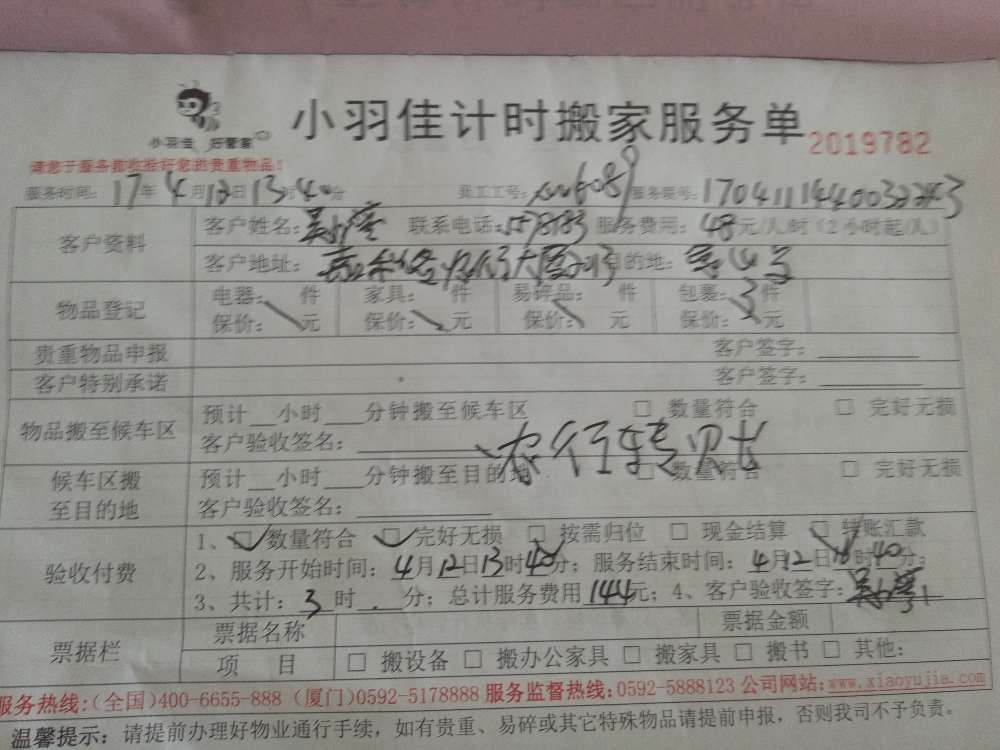 小羽佳 好管家
小羽佳计时搬家服务单 2019782
请您于服务前收拾好您的贵重物品!
服务时间: 17年4月12日13时40分 员工工号: 服务账号:
客户资料 客户姓名: 联系电话: 服务费用: 48元/人/时(2小时起/人)
客户地址: 目的地:
物品登记 电器: 件 家具: 件 易碎品: 件 包裹: 3件
保价: 元 保价: 元 保价: 元 保价: 元
贵重物品申报 客户签字:
客户特别承诺 客户签字:
物品搬至候车区 预计 小时 分钟搬至候车区 □ 数量符合 □ 完好无损
客户验收签名:
农行转账
候车区搬至目的地 预计 小时 分钟搬至目的地 □ 数量符合 □ 完好无损
客户验收签名:
验收付费 1、☑数量符合 ☑完好无损 □ 按需归位 □ 现金结算 ☑转账汇款
2、服务开始时间: 4月12日13时40分; 服务结束时间: 4月12日16时40分;
3、共计: 3时 分; 总计服务费用144元; 4、客户验收签字:
票据栏 票据名称 票据金额
项 目 □ 搬设备 □ 搬办公家具 □ 搬家具 □ 搬书 □ 其他:
服务热线:(全国)400-6655-888 (厦门)0592-5178888 服务监督热线:0592-5888123 公司网站:www.xiaoyujia.com
温馨提示: 请提前办理好物业通行手续,如有贵重、易碎或其它特殊物品请提前申报,否则我司不予负责。